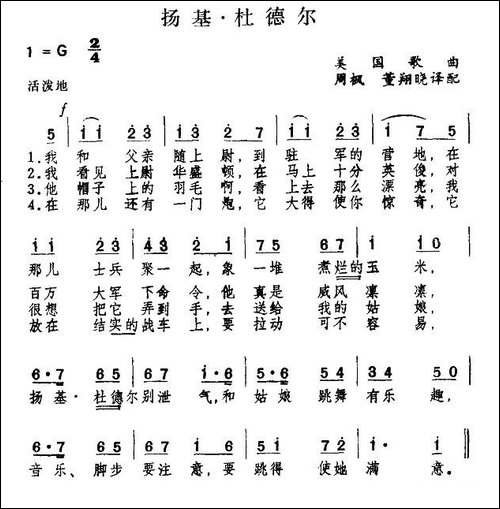 扬基·杜德尔
1=G 2/4
美国歌曲
周枫 董翔晓译配
活泼地
f
5 | i i 2 3 | i 3 2 7 | i i 2 3 | i 7 5 |
1.我 和 父亲 随上 尉,到 驻 军的 营 地,在
2.我 看见 上尉 华盛 顿,在 马上 十分 英俊,对
3.他 帽子 上的 羽毛 啊,看 上去 那么 漂亮,我
4.在 那儿 还有 一门 炮,它 大得 使你 惊奇,它
i i 2 3 | 4 3 2 1 | 7 5 6 7 | i i 0 |
那儿 士兵 聚一 起,象 一堆 煮烂的玉 米,
百万 大军 下命 令,他 真是 威风 凛 凛,
很想 把它 弄到 手,去 送给 我的 姑 娘,
放在 结实的战车 上,要 拉动 可不 容 易,
6·7 6 5 | 6 7 i·6 | 5 4 3 4 | 5 0 |
扬 基·杜德尔别泄 气,和 姑娘 跳舞 有乐 趣,
6·7 6 5 | 6 7 i 6 | 5 i 7 2 | i· i· ||
音乐、脚步 要注 意,要 跳得 使她 满 意。